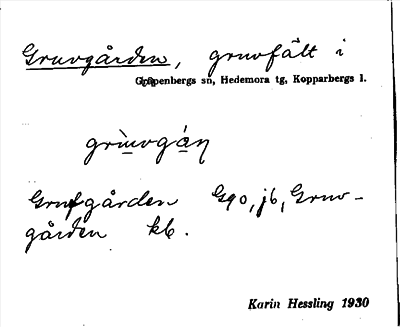 Gruvgården, gruvfält i
Garpenbergs sn, Hedemora tg, Kopparbergs l.
grùvogȧ́ɳ
Grufgården Gqo, jb, Gruv-
gården kb.
Karin Hessling 1930